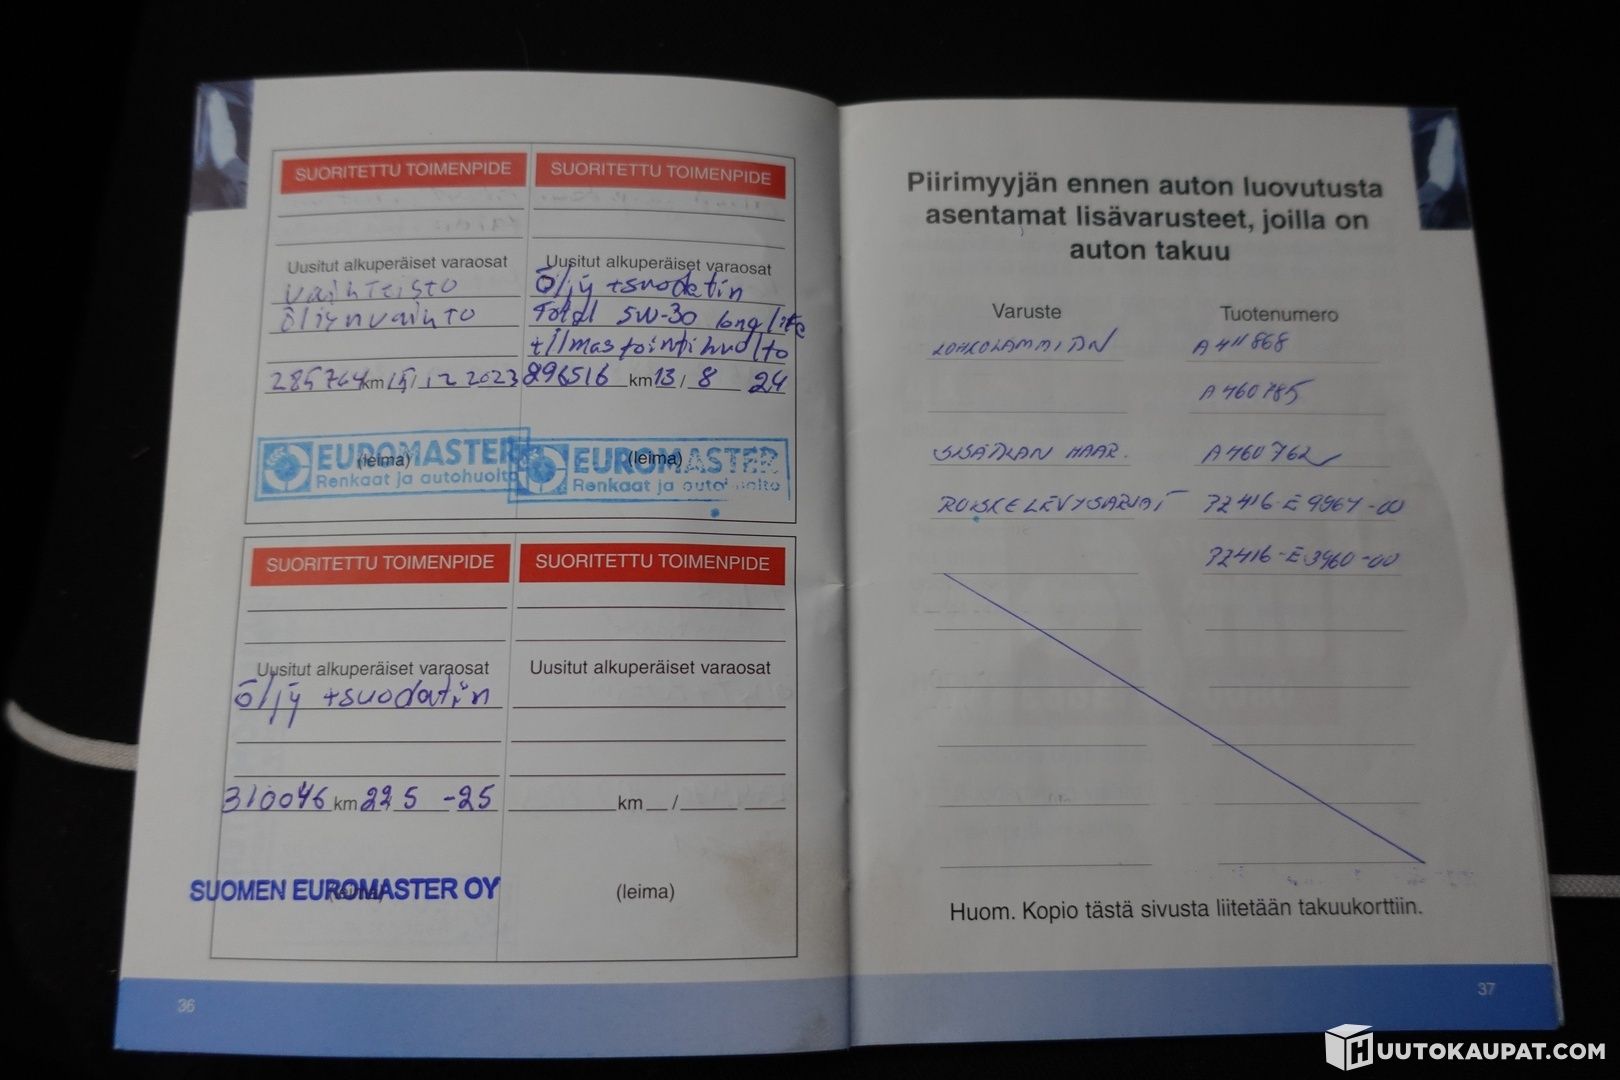 SUORITETTU TOIMENPIDE
Uusitut alkuperäiset varaosat
vaihteisto
öljynvaihto
285764 km 15/12 2023
EUROMASTER
(leima)
Renkaat ja autohuolto
SUORITETTU TOIMENPIDE
Uusitut alkuperäiset varaosat
Öljy +suodatin
Total 5W-30 longlife
+ilmastointihuolto
296516 km 13/8 24
EUROMASTER
(leima)
Renkaat ja autohuolto
SUORITETTU TOIMENPIDE
Uusitut alkuperäiset varaosat
Öljy +suodatin
310046 km 22/5 -25
SUOMEN EUROMASTER OY
(leima)
SUORITETTU TOIMENPIDE
Uusitut alkuperäiset varaosat
km /
(leima)
36
Piirimyyjän ennen auton luovutusta
asentamat lisävarusteet, joilla on
auton takuu
Varuste Tuotenumero
LOHKOLÄMMITIN A411868
A460785
SISÄTILAN HAAR. A460762
ROISKELÄPPÄSARJAT 72416-E9964-00
72416-E3960-00
Huom. Kopio tästä sivusta liitetään takuukorttiin.
37
HUUTOKAUPAT.COM